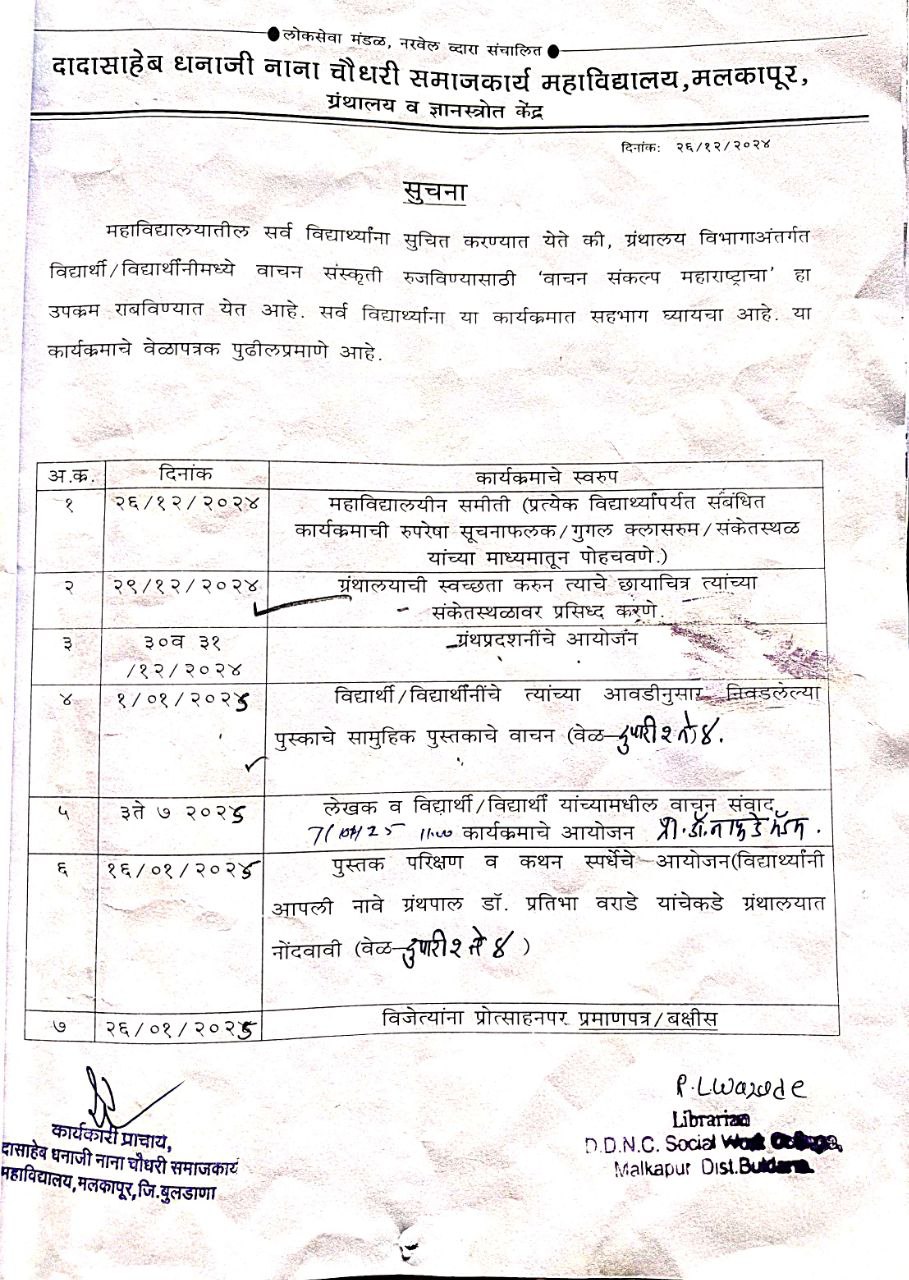 लोकसेवा मंडळ, नरवेल व्दारा संचालित
दादासाहेब धनाजी नाना चौधरी समाजकार्य महाविद्यालय,मलकापूर,
ग्रंथालय व ज्ञानस्त्रोत केंद्र
दिनांक: २६/१२/२०२४
सुचना
महाविद्यालयातील सर्व विद्यार्थ्यांना सुचित करण्यात येते की, ग्रंथालय विभागाअंतर्गत
विद्यार्थी/विद्यार्थीनीमध्ये वाचन संस्कृती रुजविण्यासाठी 'वाचन संकल्प महाराष्ट्राचा' हा
उपक्रम राबविण्यात येत आहे. सर्व विद्यार्थ्यांना या कार्यक्रमात सहभाग घ्यायचा आहे. या
कार्यक्रमाचे वेळापत्रक पुढीलप्रमाणे आहे.
अ.क. दिनांक कार्यक्रमाचे स्वरुप
१ २६/१२/२०२४ महाविद्यालयीन समीती (प्रत्येक विद्यार्थ्यांपर्यत संबंधित
कार्यक्रमाची रुपरेषा सूचनाफलक/गुगल क्लासरुम/संकेतस्थळ
यांच्या माध्यमातून पोहचवणे.)
२ २९/१२/२०२४ ग्रंथालयाची स्वच्छता करुन त्याचे छायाचित्र त्यांच्या
संकेतस्थळावर प्रसिध्द करणे.
३ ३०व ३१ ग्रंथप्रदशनींचे आयोजन
/१२/२०२४
४ १/०१/२०२५ विद्यार्थी/विद्यार्थीनींचे त्यांच्या आवडीनुसार निवडलेल्या
पुस्काचे सामुहिक पुस्तकाचे वाचन (वेळ-दुपारी २ ते ४.
५ ३ते ७ २०२५ लेखक व विद्यार्थी/विद्यार्थी यांच्यामधील वाचन संवाद
11.00 कार्यक्रमाचे आयोजन
६ १६/०१/२०२५ पुस्तक परिक्षण व कथन स्पर्धेचे आयोजन(विद्यार्थ्यांनी
आपली नावे ग्रंथपाल डॉ. प्रतिभा वराडे यांचेकडे ग्रंथालयात
नोंदवावी (वेळ-दुपारी २ ते ४ )
७ २६/०१/२०२५ विजेत्यांना प्रोत्साहनपर प्रमाणपत्र/बक्षीस
P.L.Warade
Librarian
D.D.N.C. Social Work College,
Malkapur Dist.Buldana.
कार्यकारी प्राचाय,
दासाहेब धनाजी नाना चौधरी समाजकार्य
महाविद्यालय,मलकापूर,जि.बुलडाणा